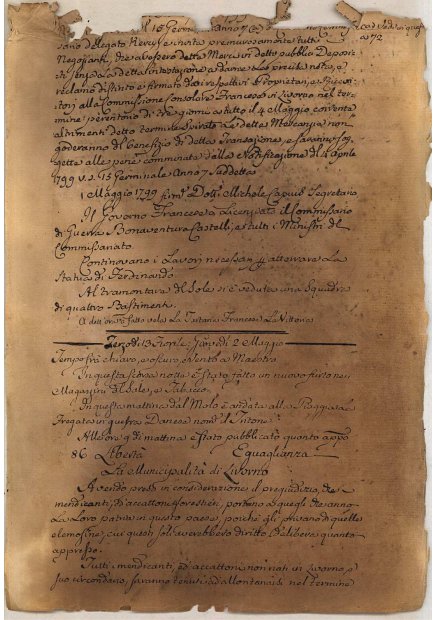 Il 15 Germ. Anno 7
zario delegato Reveyse invita premurosamente tutti
Negozianti, che avessero delle Merci in detto pubblico Deposi-
to sendo la detta intestazione a darne la precisa nota, e
reclamo distinto e firmato dai respettivi Proprietari, o Ricevi-
tori alla Commissione Consolare Francese in Livorno nel ter-
mine perentorio di tre giorni a tutto il 4 Maggio corrente
altrimenti detto termine spirato le dette Mercanzie non
goderanno del benefizio di detta Transazione, e saranno sog-
gette alle pene comminate dalla Notificazione del 4 Aprile
1799 v. s. 15 Germinale Anno 7 suddetto
1 Maggio 1799 firm. Dott. Michele Segretario
Il Governo Francese a Licenziato il Commissario
di Guerra Bonaventura Castelli, e tutti i Ministri del
Commissariato
Continovano i Lavori necessarj p atterrare La
Statua di Ferdinando
Al tramontare del Sole si è veduta una Squadra
di quattro Bastimenti
A dett'ora fatto vela La Tartana Francese La Vittoria
Terzodì 13 Fiorile: Giovedì 2 Maggio
Tempo frà chiaro, e oscuro, e vento a Maestro
In questa scorsa notte è stato fatto un nuovo furto nei
Magazzini del Sale, e Tabacco
In questa mattina dal Molo è andata alla Spiaggia la
Fregata in guerra Danese nom. il Tritone
Alle ore 9 di mattina è stato pubblicato quanto appo
86 Libertà Eguaglianza
La Municipalità di Livorno
Avendo preso in considerazione il pregiudizio, che
mendicanti, ed accattoni forestieri, portano a quegli che anno
La Loro patria in questo paese, poichè gli privano di quelle
elemosine, cui questi soli avrebbero diritto, delibera quanto
appresso.
Tutti i mendicanti, ed accattoni non nati in Livorno, e
suo circondario, saranno tenuti ad allontanarsi nel termine